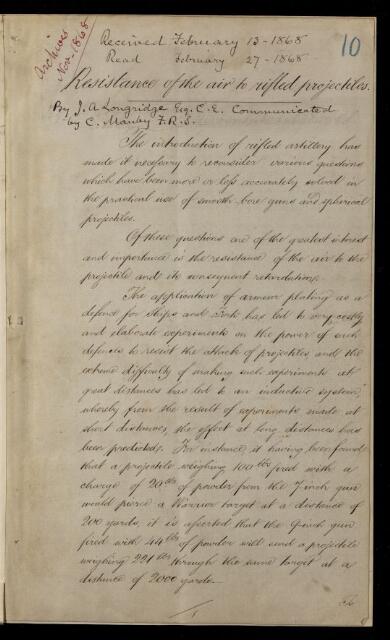 Archives
Nov. 1868
Received February 13 - 1868
Read February 27 - 1868
10
Resistance of the air to rifled projectiles.
By J. A. Longridge Esq. C.E. Communicated
by C. Manby F.R.S.
The introduction of rifled artillery has
made it necessary to reconsider various questions
which have been more or less accurately solved in
the practical use of smooth bore guns and spherical
projectiles.
Of these questions one of the greatest interest
and importance is the resistance of the air to the
projectile and its consequent retardation.
The application of armour plating as a
defence for Ships and Forts has led to very costly
and elaborate experiments on the power of such
defences to resist the attack of projectiles and the
extreme difficulty of making such experiments at
great distances has led to an inductive system,
whereby from the result of experiments made at
short distances, the effect at long distances has
been predicted. For instance it having been found
that a projectile weighing 100 lbs fired with a
charge of 20 lbs of powder from the 7 inch gun
would pierce a Warrior target at a distance of
200 yards, it is asserted that the 9 inch gun
fired with 44 lbs of powder will send a projectile
weighing 221 lbs through the same target at a
distance of 2000 yards.